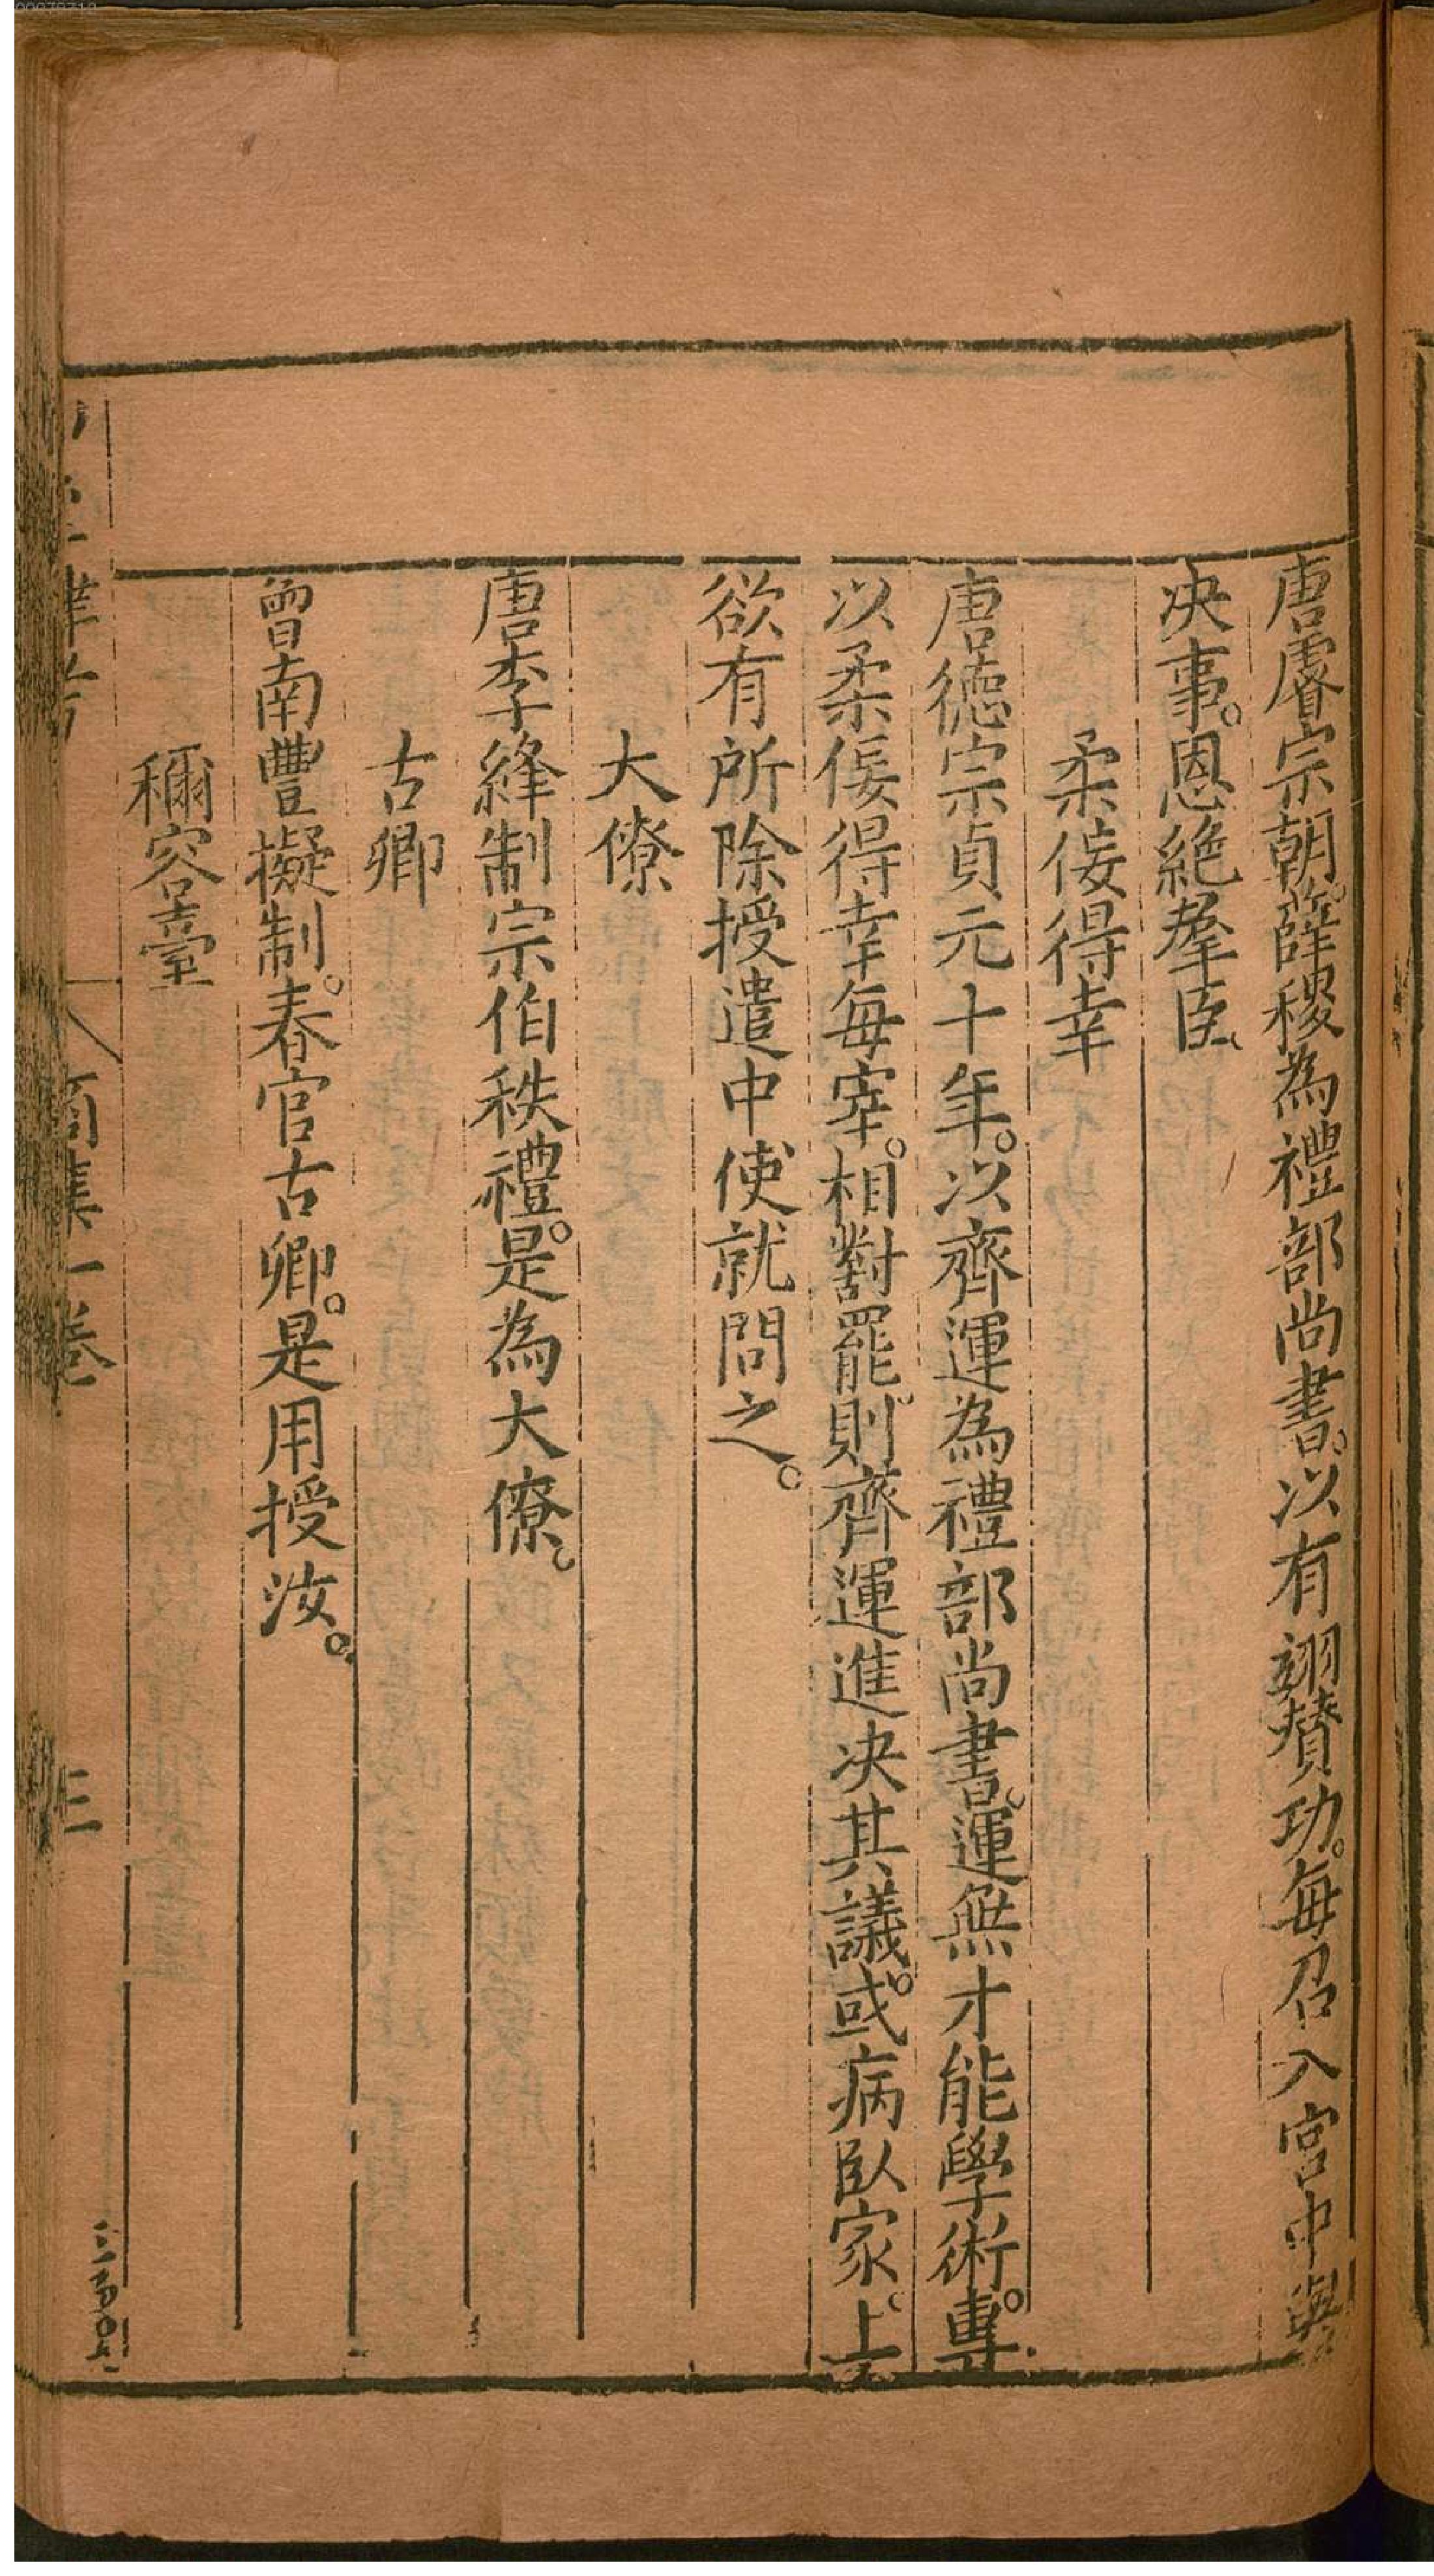 唐睿宗朝。薛稷為禮部尚書。以有翊賛功。每召入宮中與
决事。恩絶羣臣。
柔佞得幸
唐徳宗貞元十年。以齊運為禮部尚書。運無才能學術。專
以柔佞得幸每宰。相對罷。則齊運進决其議。或病臥家。上
欲有所除授遣中使就問之。
大僚
唐李絳制宗伯秩禮。是為大僚。
古卿
曾南豐擬制。春官古卿。是用授汝。
稱容臺
前集一卷
三